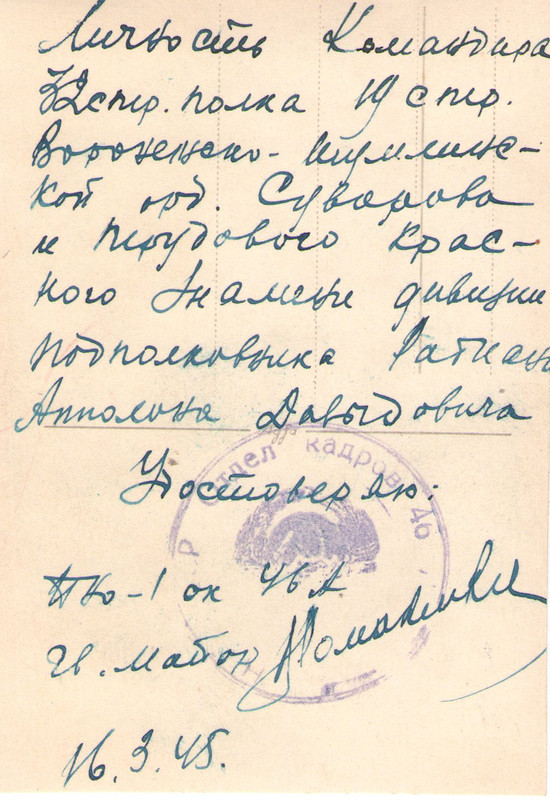 Личность Командира
32 стр. полка 19 стр.
Вороненско-Шумлинс-
кой орд. Суворова
и Трудового Крас-
ного Знамени дивизии
подполковника Ратиан
Апполона Давыдовича
Отдел кадров 46
Удостоверяю:
ПНО-1 ок 46 А
гв. майор
16.3.45.